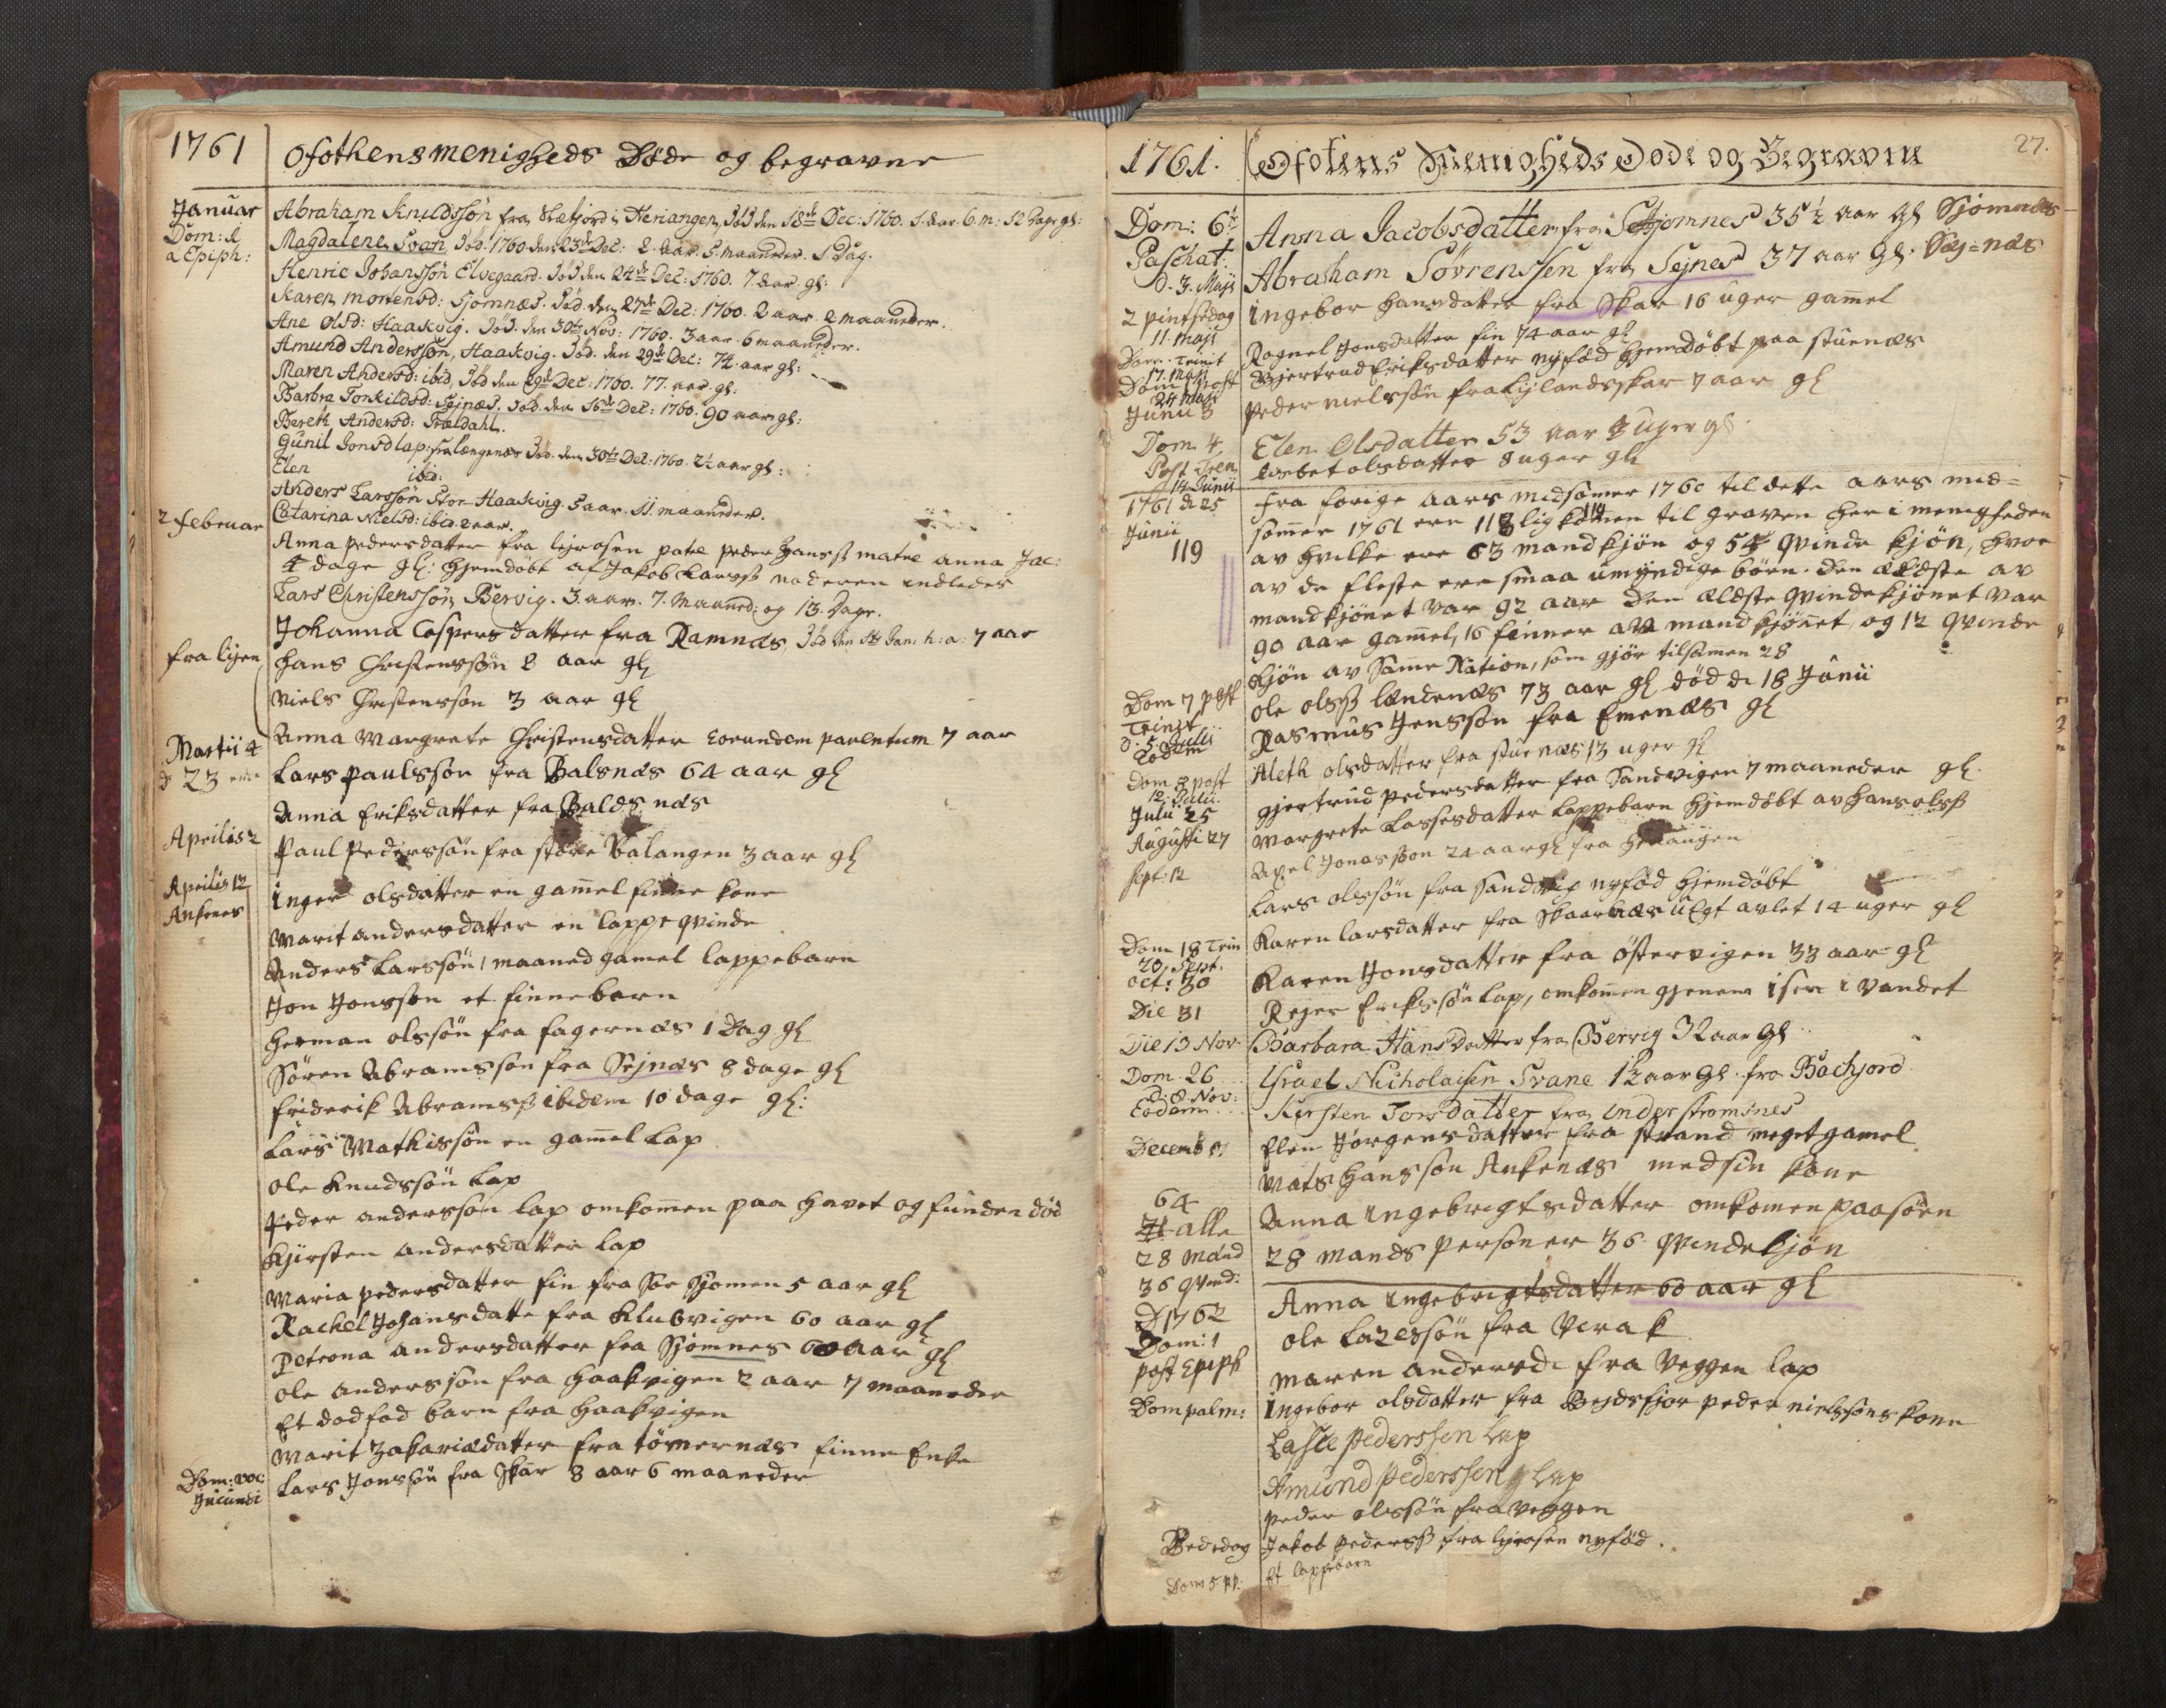 1761 Ofothens menigheds Døde og begravne
Januar Abraham Knudssøn fra Hefjord i Heriangen, død den 18de Dec: 1760. 1. Aar. 6. m: 12 Dage gl:
Dom: 1. Magdalene Svan, død. 1760 den 23de Dec: 2. Aar. 5. maaneder. 1. Dag.
a Epiph: Henric Johanssøn Elvegaard. død den 24de Dec: 1760. 7 Aar. gl:
Karen Mortensd: Sjomnæs. Død. den 27de Dec: 1760. 2 aar. 2 maaneder.
Ane Olsd: Haakvig. død. den 30te Nov: 1760. 3 aar. 6 maaneder.
Amund Anderssøn, Haakvig. død. den 29de Dec: 74. aar gl:
Maren Andersd: ibid, død den 29de Dec: 1760. 77. aar. gl:
Barbra Tonkildsd: Sejnæs. død. den 16de Dec: 1760. 90 aar gl:
Bereth Andersd: Trældahl.
Gunil Jonsd lap: fra Længenæs død. den 30te Dec: 1760. 2½ aar gl:
Elen ibid:
Anders Larssøn Stor-Haakvig. 5 aar. 11. maaneder.
2 februar Catarina Nielsd: ibid. 2 aar.
Anna pedersdatter fra lijrosen patre peder Hanss matre anna Jac:
4 dage gl: hjemdøbt af Jakob Larss moderen indleder
Lars Christenssøn Bervig. 3. aar. 7. Maaned: og 13. Dage.
Johanna Caspersdatter fra Ramnæs, død den Jan: h: a: 7 aar
fra lijen Hans Christenssøn 8 aar gl
Niels Christenssøn 3 aar gl
Anna Margrete Christensdatter eorundem parentum 7 aar
Martii 4
d 23 Lars Paulssøn fra Balsnæs 64 aar gl
Anna Eriksdatter fra Baldsnæs
Aprilis 2 Paul Pederssøn fra store Balangen 3 aar gl
Aprilis 12 Inger olsdatter en gammel finne kone
Ankenes Marit andersdatter en lappe qvinde
Anders Larssøn 1 maaned gamel lappebarn
Jon Jonssøn et finnebarn
Herman olssøn fra fagernæs 1 dag gl
Søren Abramssøn fra Sejnæs 8 dage gl
friderik Abramss ibidem 10 dage gl:
Lars Mathissøn en gammel Lap
Ole Knudssøn Lap
Peder anderssøn lap omkommen paa havet og funden død
Kjirsten andersdatter lap
Maria pedersdatter fin fra sør Sjomen 5 aar gl
Rachel Johansdatte fra Klubvigen 60 aar gl
Petrona andersdatter fra Sjomnes aar gl
Ole anderssøn fra Haakvigen 2 aar 7 maaneder
Et dødfød barn fra Haakvigen
Marit Zakariædatter fra tømernæs finne Enke
Dom: voc Jucundi Lars Jonssøn fra Skar 8 aar 6 maaneder
27.
1761. Ofotens Menigheds Døde og Begravne
Dom: 6te Anna Jacobsdatter fra Sjomnes 35½ aar gl Sjomnæs
Paschat: D. 3. Maji Abraham Sørrenssen fra Sejnes 37 aar gl. Sej=næs
2 pintsedag 11 Maji Ingebor Hansdatter fra Skar 16 uger gamel
Dom. Trinit 17 Maji Ragnel Jonsdatter fin 74 aar gl
Dom 1 post 24 Maji Gjertrud Eriksdatter nyfød hjemdøbt paa stuenæs
Junii 3 Peder Nielssøn fra lijlandsskar 7 aar gl
Dom. 4 Elen Olsdatter 53 aar uger gl
Post Tren 14 Junii Lisbet olsdatter 8 uger gl
1761 d 25 fra forige aars midsomer 1760 til dette aars mid=
Junii sommer 1761 ere 118 119 lig komen til graven her i menigheden
119 av hvilke ere 63 mandkjøn og 54 qvinde kjøn, hvor
av de fleste ere smaa umyndige børn. den ældste av
mandkjønet var 92 aar den ældste qvindekjønet var
90 aar gammel, 16 finner av mandkjønet, og 12 qvinde
kjøn av Samme Nation, som gjør tilsamen 28
Dom 7 post Ole olss lændenæs 73 aar gl død d 18 Junii
Trinit d. 5 Julii Rasmus Jenssøn fra Emenæs gl
Eodem Aleth olsdatter fra stuenæs 13 uger gl
Dom 8 post 12 Julii. Gjertrud pedersdatter fra Sandvigen 7 maaneder gl.
Julii 25 Margrete Lassesdatter Lappebarn hjemdøbt av Hans olss
Augusti 27 Axel Jonassøn 24 aar gl fra Heriangen
Sept: 12 Lars olssøn fra Sandvig nyfød hjemdøbt
Karen larsdatter fra Skaarnæs uægt avlet 14 uger gl
Dom 18 Trin 20 Sept. Karen Jonsdatter fra Østervigen 33 aar gl
Oct: 30
Die 31 Rejer Erikssøn lap, omkommen gjenem isen i vandet
Die 13 Nov. Barbara Hansdatter fra Bervig 32 aar gl
Dom. 26 Israel Nicholaisen Svane 12 aar gl. fra Bachjord
Nov: Eodem Kirsten Torsdatter fra Inderstromsnes
Decemb Elen Jørgensdatter fra strand meget gamel
Mats Hanssøn Ankenæs med sin kone
64 Anna Ingebrigtsdatter omkomen paa søen
alle
28 Mand 28 mands personer 36 qvindekjøn
36 qvind:
D 1762 Anna Ingebrigtsdatter 60 aar gl
Dom: 1 Ole Lazessøn fra Verak
post Epiph Maren andersd: fra Veggen lap
Dom palm: Ingebor olsdatter fra Bejdsfjor peder nielssøns kone
Lasse Pederssen Lap
Amund Pederssen Lap
Peder olssøn fra veggen
Bededag Jakob pederss fra lijrosen nyfød.
Dom 5 pp: Et lappebarn